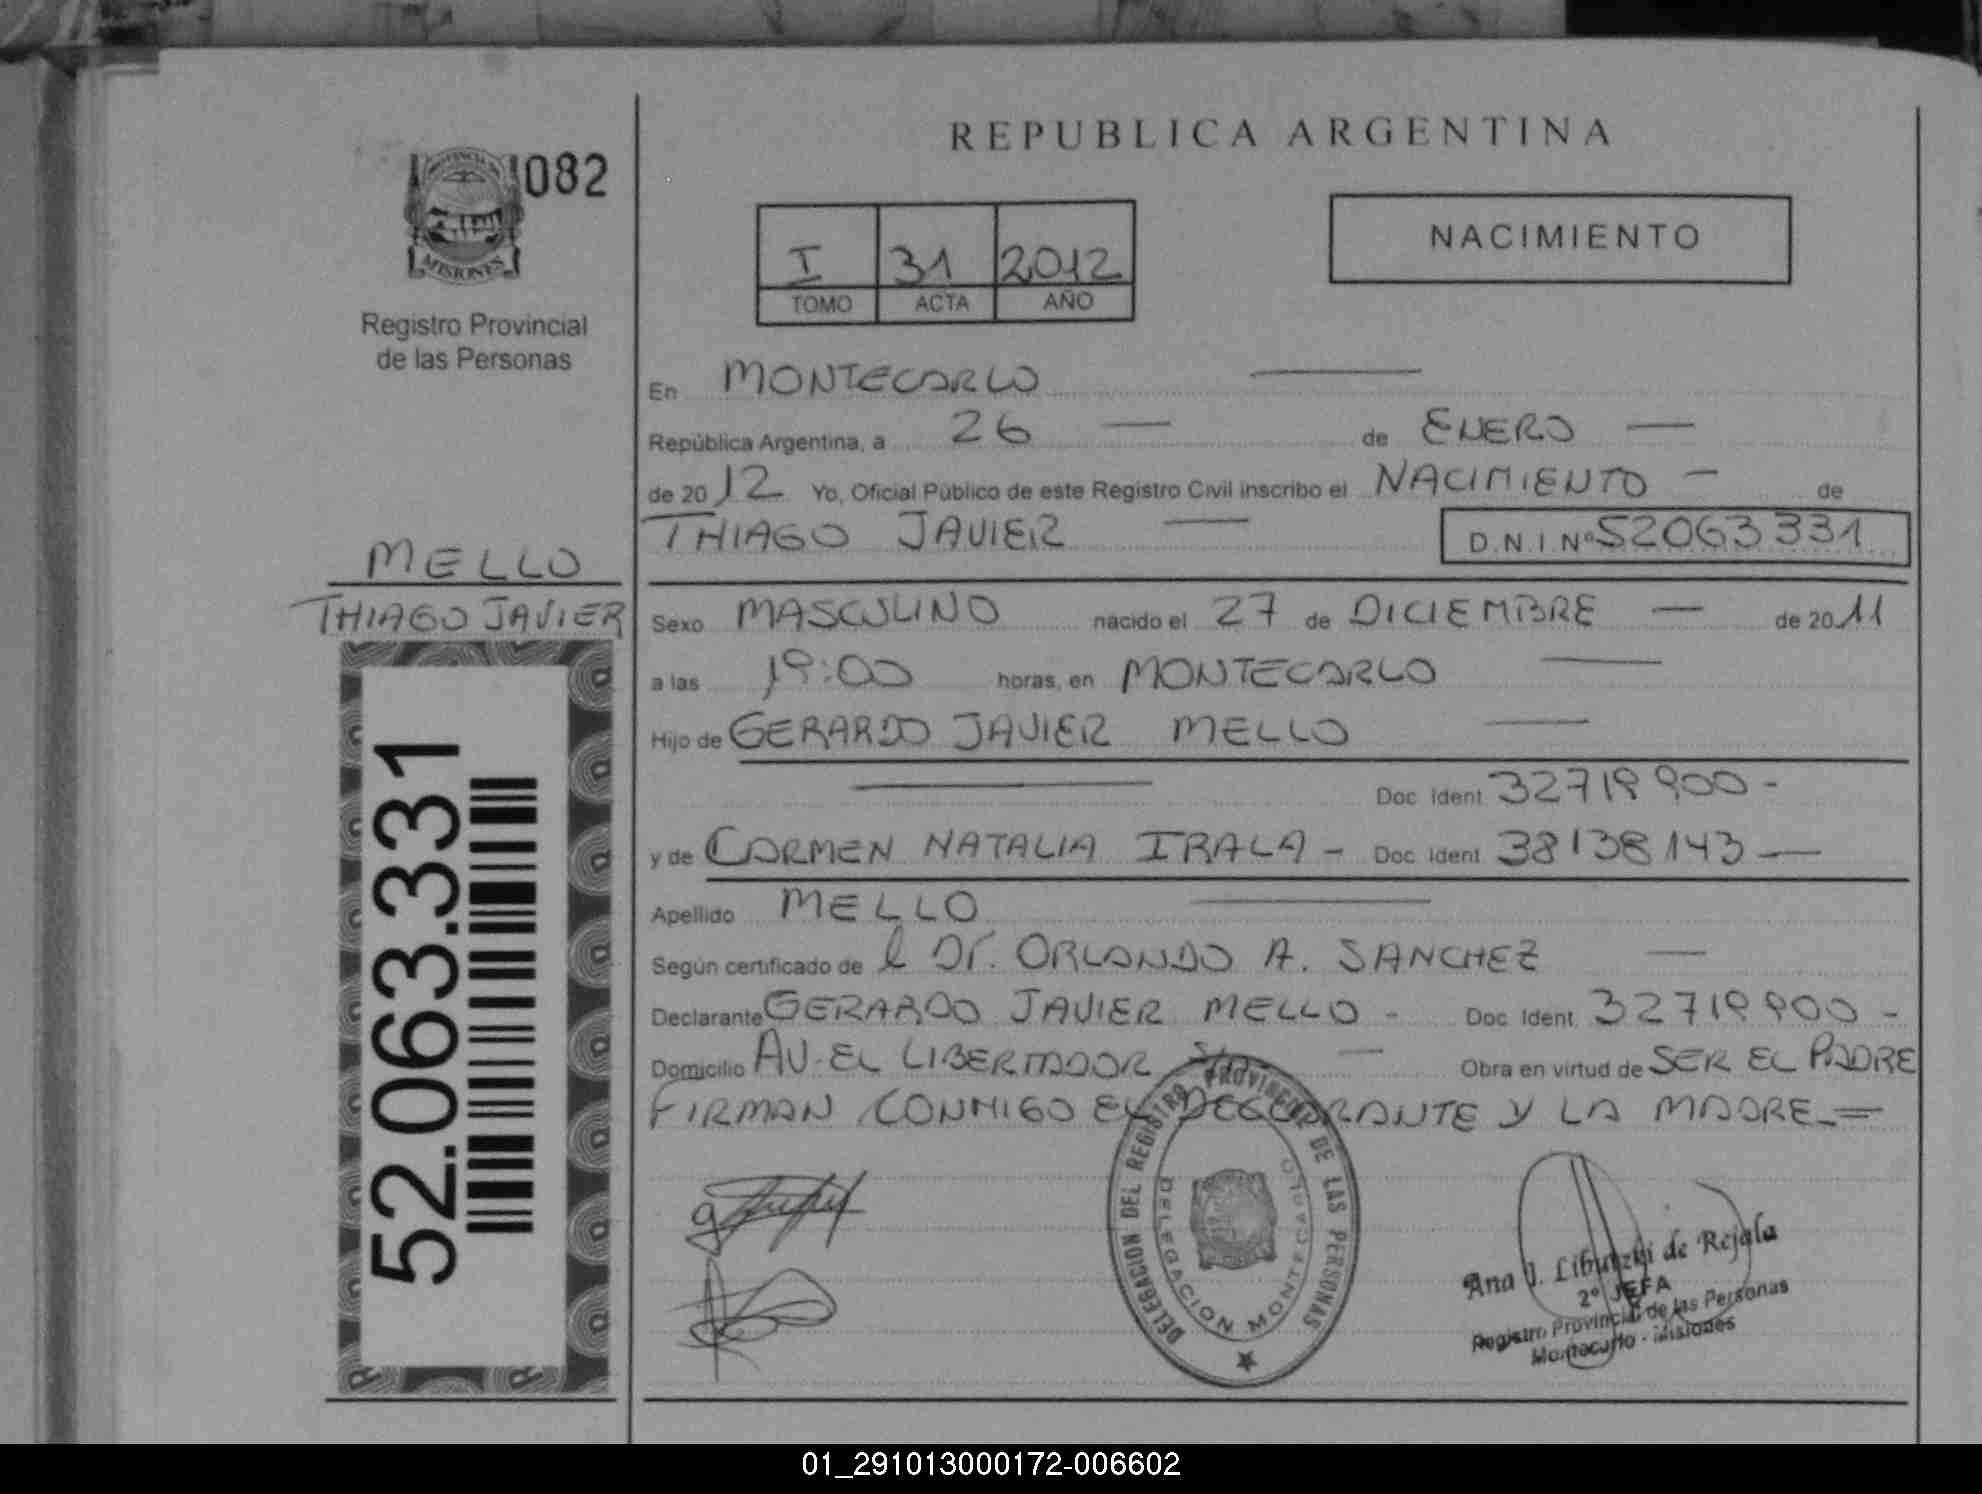 082
PROVINCIA DE
MISIONES
Registro Provincial
de las Personas
MELLO
THIAGO JAVIER
52.063.331
REPUBLICA ARGENTINA
I 31 2012
TOMO ACTA AÑO
NACIMIENTO
En MONTECARLO
República Argentina, a 26 de ENERO
de 2012 Yo, Oficial Público de este Registro Civil inscribo el NACIMIENTO - de
THIAGO JAVIER D.N.I.Nº 52063331
Sexo MASCULINO nacido el 27 de DICIEMBRE de 2011
a las 19:00 horas, en MONTECARLO
Hijo de GERARDO JAVIER MELLO
Doc Ident 32719900-
y de CARMEN NATALIA IRALA - Doc Ident 38138143
Apellido MELLO
Según certificado de l Dr. ORLANDO A. SANCHEZ
Declarante GERARDO JAVIER MELLO - Doc Ident 32719900-
Domicilio AV. EL LIBERTADOR S/Nº Obra en virtud de SER EL PADRE
FIRMAN CONMIGO EL DECLARANTE Y LA MADRE.=
DELEGACION DEL REGISTRO PROVINCIAL DE LAS PERSONAS
DELEGACION MONTECARLO
Ana de Rejala
2º JEFA
Registro Provincial de las Personas
Montecarlo - Misiones
01_291013000172-006602